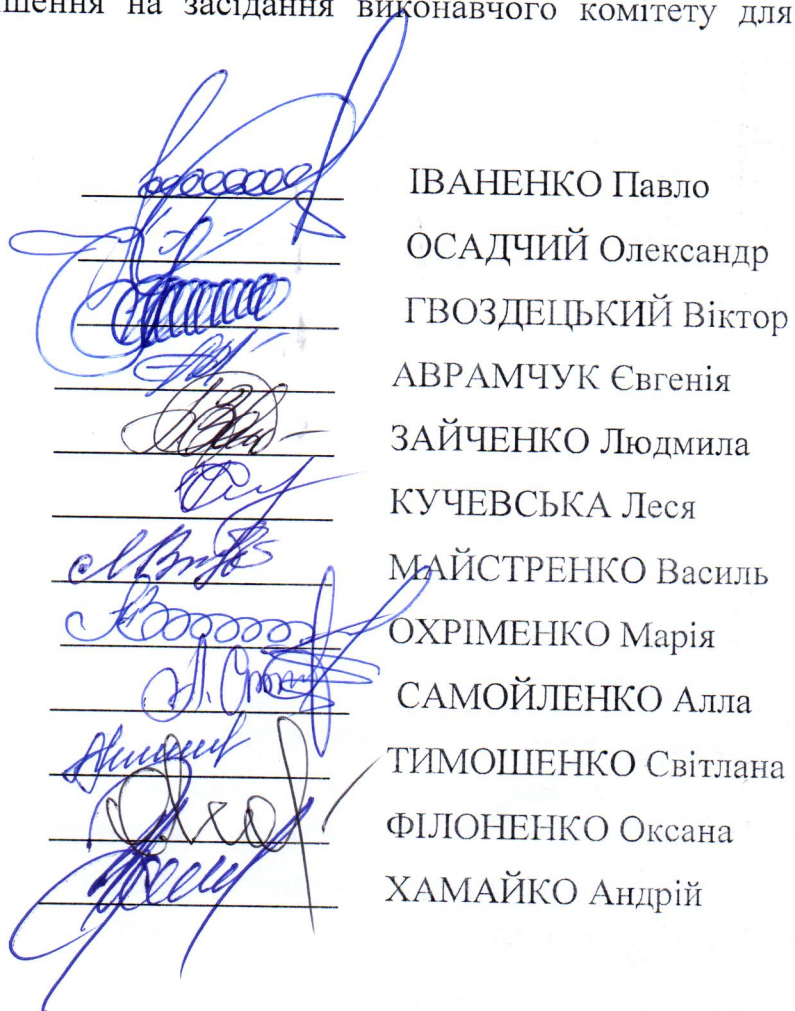 на засідання виконавчого комітету для
ІВАНЕНКО Павло
ОСАДЧИЙ Олександр
ГВОЗДЕЦЬКИЙ Віктор
АВРАМЧУК Євгенія
ЗАЙЧЕНКО Людмила
КУЧЕВСЬКА Леся
МАЙСТРЕНКО Василь
ОХРІМЕНКО Марія
САМОЙЛЕНКО Алла
ТИМОШЕНКО Світлана
ФІЛОНЕНКО Оксана
ХАМАЙКО Андрій